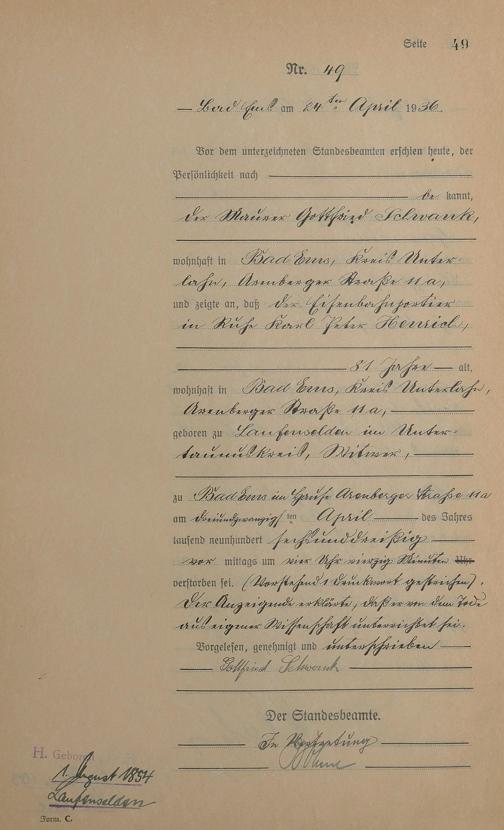 Seite 49
Nr. 49
Bad Ems am 24ten April 1936.
Vor dem unterzeichneten Standesbeamten erschien heute, der
Persönlichkeit nach
be kannt,
der Maurer Gottfried Schwank,
wohnhaft in Bad Ems, Kreis Unter
lahn, Arenberger Straße 11 a,
und zeigte an, daß der Eisenbahnportier
in Ruhe Karl Peter Henrich,
81 Jahre alt,
wohnhaft in Bad Ems, Kreis Unterlahn,
Arenberger Straße 11 a,
geboren zu Laufenselden im Unter-
taunuskreis, Witwer,
zu Bad Ems im Hause Arenberger Straße 11 a
am dreiundzwanzigsten April des Jahres
tausend neunhundert sechsunddreißig
vor mittags um vier Uhr vierzig Minuten Uhr
verstorben sei. (Vorstehend 1 Druckwort gestrichen).
Der Anzeigende erklärte, daß er von dem Tode
aus eigner Wissenschaft unterrichtet sei.
Vorgelesen, genehmigt und unterschrieben
Gottfried Schwank
Der Standesbeamte.
In Vertretung
H. Gebor
1. August 1854
Laufenselden
Form. C.